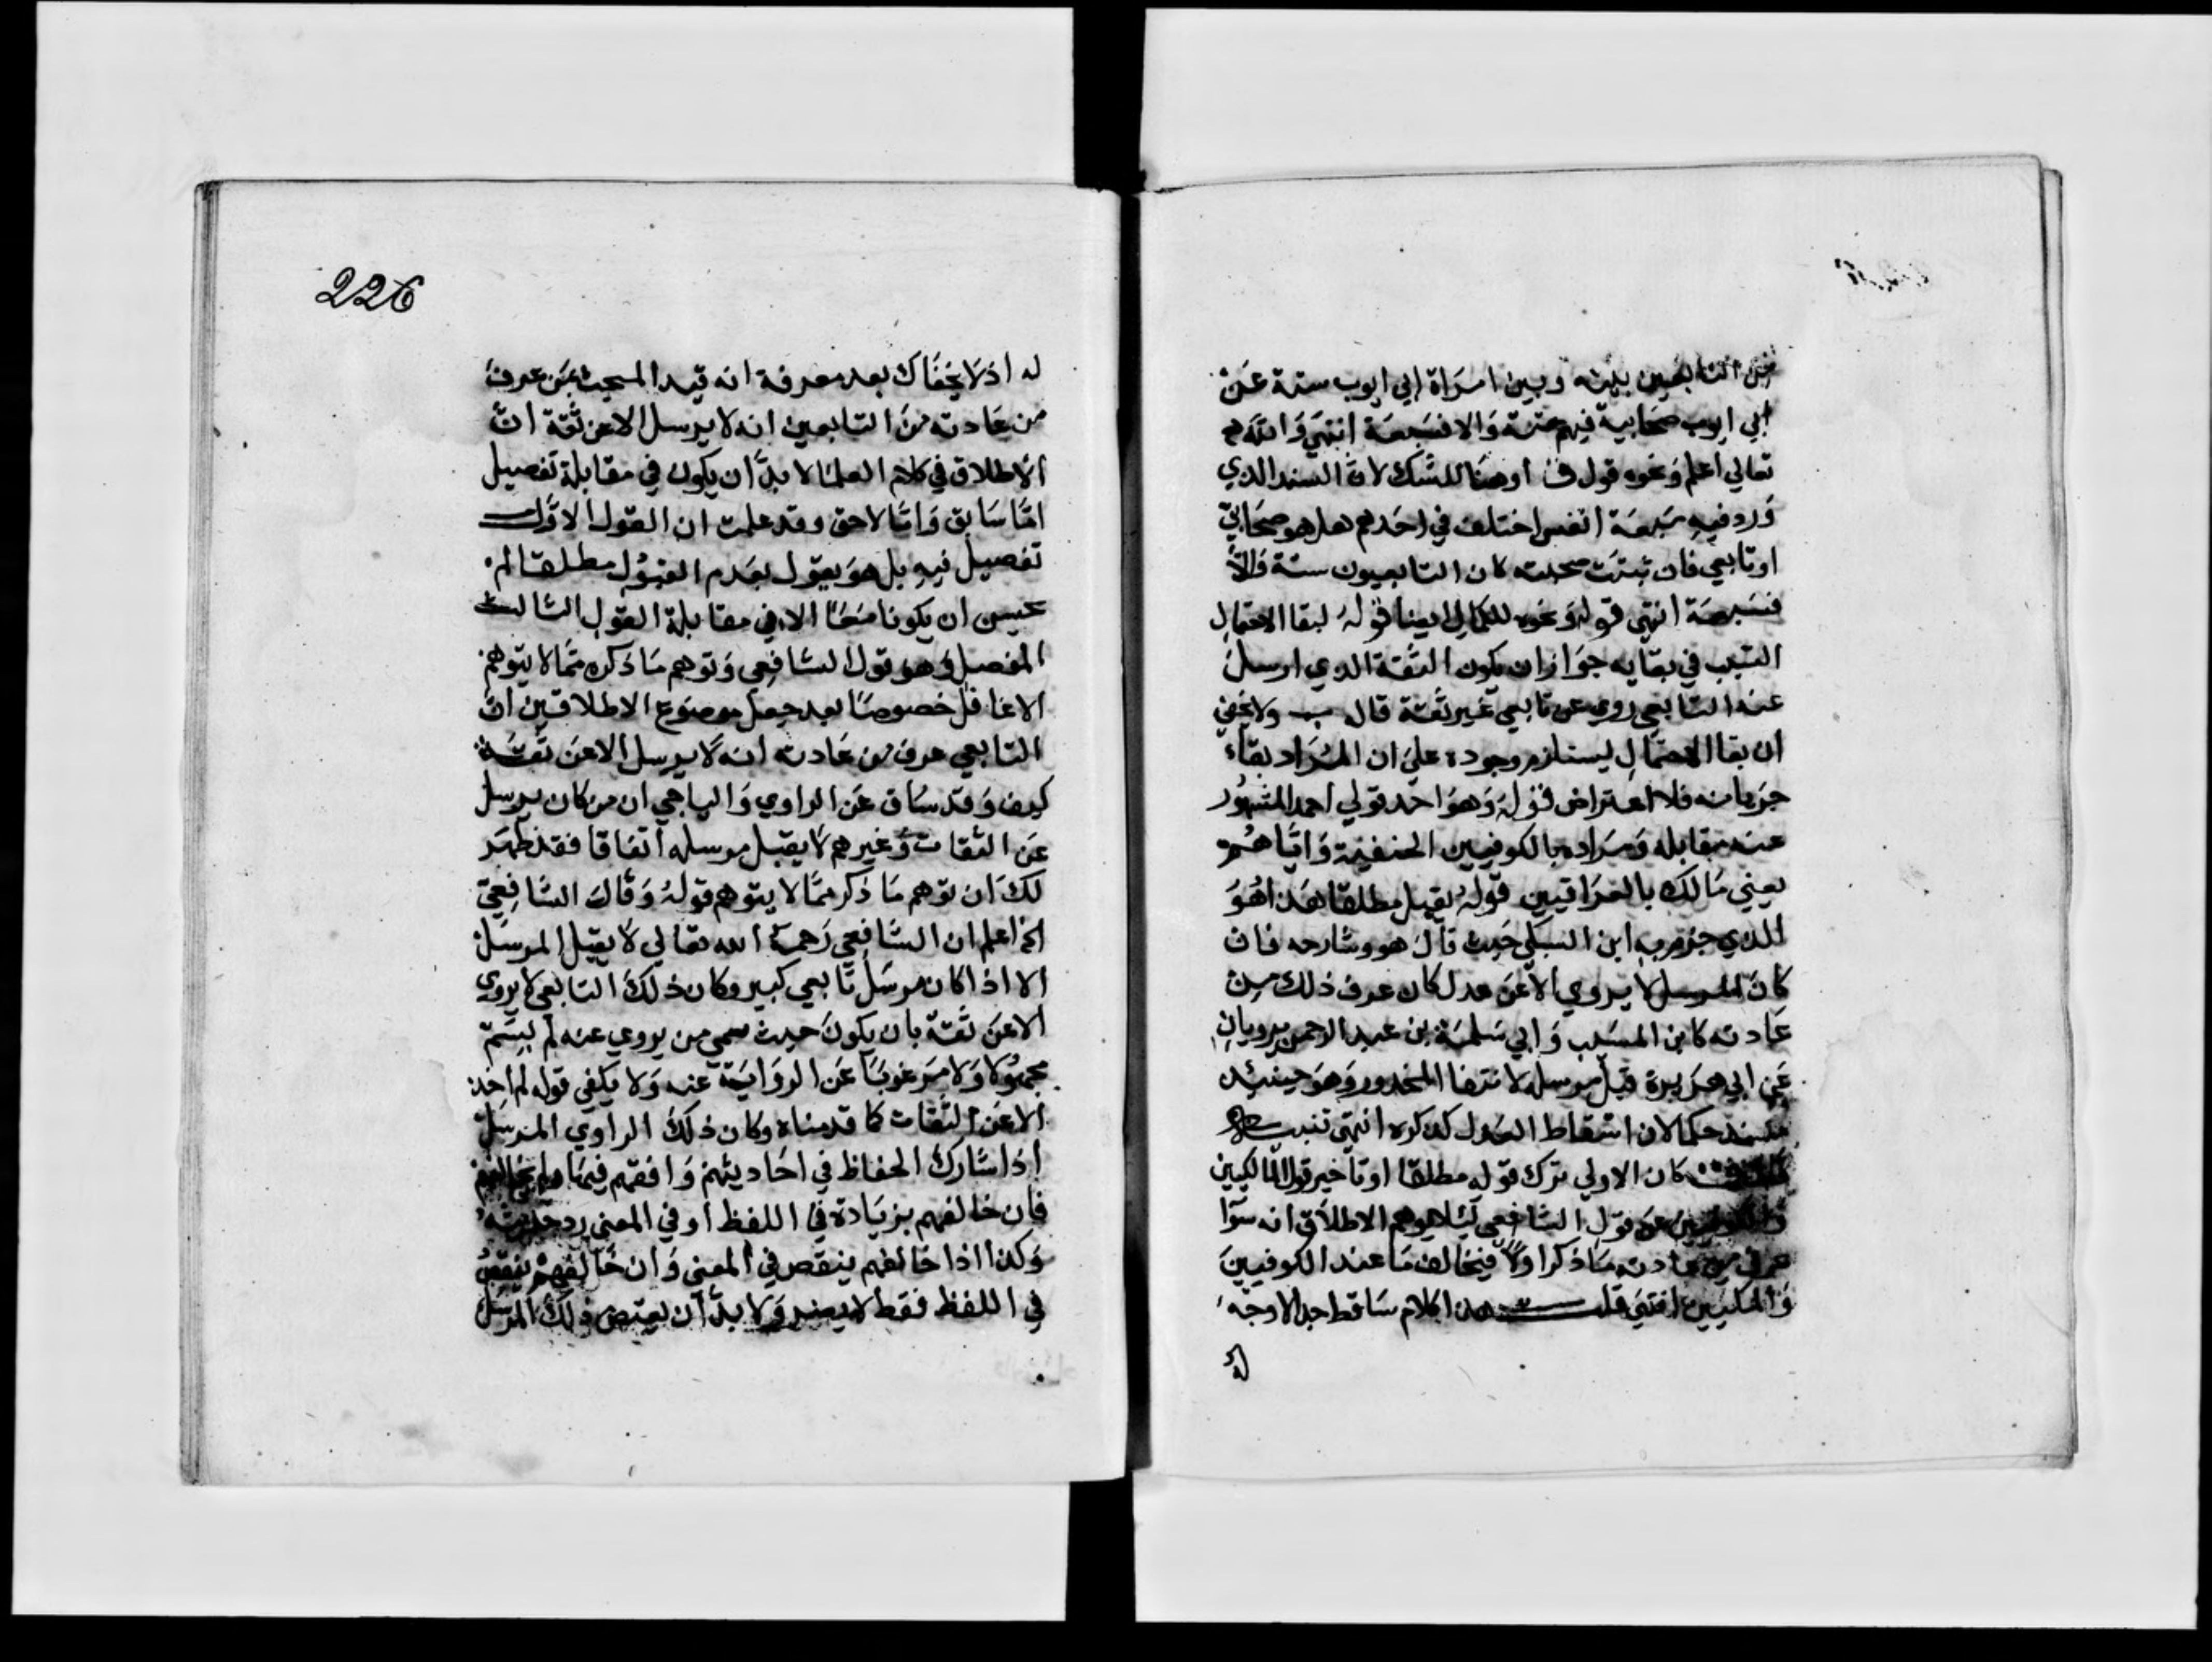 من التابعين بينه وبين امراة ابي ايوب ستة عن
ابي ايوب صحابية فيهم ستة والا فسبعة انتهى والله
تعالى اعلم ونحوه قول ف اوهنا للشك لان السند الدي
ورد فيه سبعة انفس اختلف في احدهم هل هو صحابي
او تابعي فان ثبتت صحبته كان التابعيون ستة والا
فسبعة انتهى قوله ونحوه للكمال ايضا قوله لبقا الاحتمال
السبب في بقايه جوازان يكون الثقة الدي ارسل
عنه التابعي روي عن تابعي غير ثقة قاله ب ولا يخفي
ان بقا الاحتمال يستلزم وجوده علي ان المراد بقاء
جريانه فلا اعتراض قوله وهو احد قولي احمد المشهور
عنه مقابله ومراده بالكوفيين الحنفية واياهم
يعني مالك بالعراقيين قوله يقبل مطلقا هذا هو
الذي جزم به ابن السبكي حيث قال هو وشارحه فان
كان المرسل لا يروي الا عن عدل كان عرف ذلك من
عادته كابن المسيب وابي سلمة بن عبد الرحمن يرويان
عن ابي هريرة قبل مرسله لانتفا المحدور وهو حينئد
مسند حكما لان اسقاط العدل كدكره انتهى تنبيه
كان الاولي ترك قوله مطلقا او تاخير قول المالكيين
عن قول الشافعي ليلا يوهم الاطلاق انه سوا
عرف من عادته ما ذكر اولا فيخالف ما عند الكوفيين
والمالكيين انتهي قلت هدا كلام ساقط جدا لا وجه
له
226
له اذ لا يخفاك بعد معرفة انه قيد المبحث بمن عرف
من عادته من التابعين انه لا يرسل الا عن ثقة ان
الاطلاق في كلام العلما لا بد ان يكون في مقابلة تفصيل
اما سابق واما لاحق وقد علمت ان القول الاول
تفصيل فيه بل هو يقول بعدم القبول مطلقا لم
يحسن ان يكونا معا الا في مقابلة القول الثالث
المفصل وهو قول الشافعي وتوهم ما ذكره مما لا يتوهم
الا غافل خصوصا بعد جعل موضوع الاطلاقين ان
التابعي عرف من عادته انه لا يرسل الا عن ثقة
كيف وقد ساق عن الراوي والباجي ان من كان يرسل
عن الثقات وغيرهم لا يقبل مرسله اتفاقا فقد ظهر
لك ان توهم ما ذكر مما لا يتوهم قوله وقال الشافعي
الخ اعلم ان الشافعي رحمه الله تعالي لا يقبل المرسل
الا اذا كان مرسل تابعي كبير وكان ذلك التابعي لا يروي
الا عن ثقة بان يكون حيث سمي من يروي عنه لم يسم
مجهولا ولا مرغوبا عن الرواية عنه ولا يكفي قوله لم اخذ
الا عن الثقات كما قدمناه وكان ذلك الراوي المرسل
اذا شارك الحفاظ في احاديثهم وافقهم فيها ولم يخالفهم
فان خالفهم بزيادة في اللفظ او في المعني رد حديثه
وكذا اذا خالفهم بنقص في المعني وان خالفهم بنقص
في اللفظ فقط لا يضر ولا بد ان يعتضد ذلك المرسل